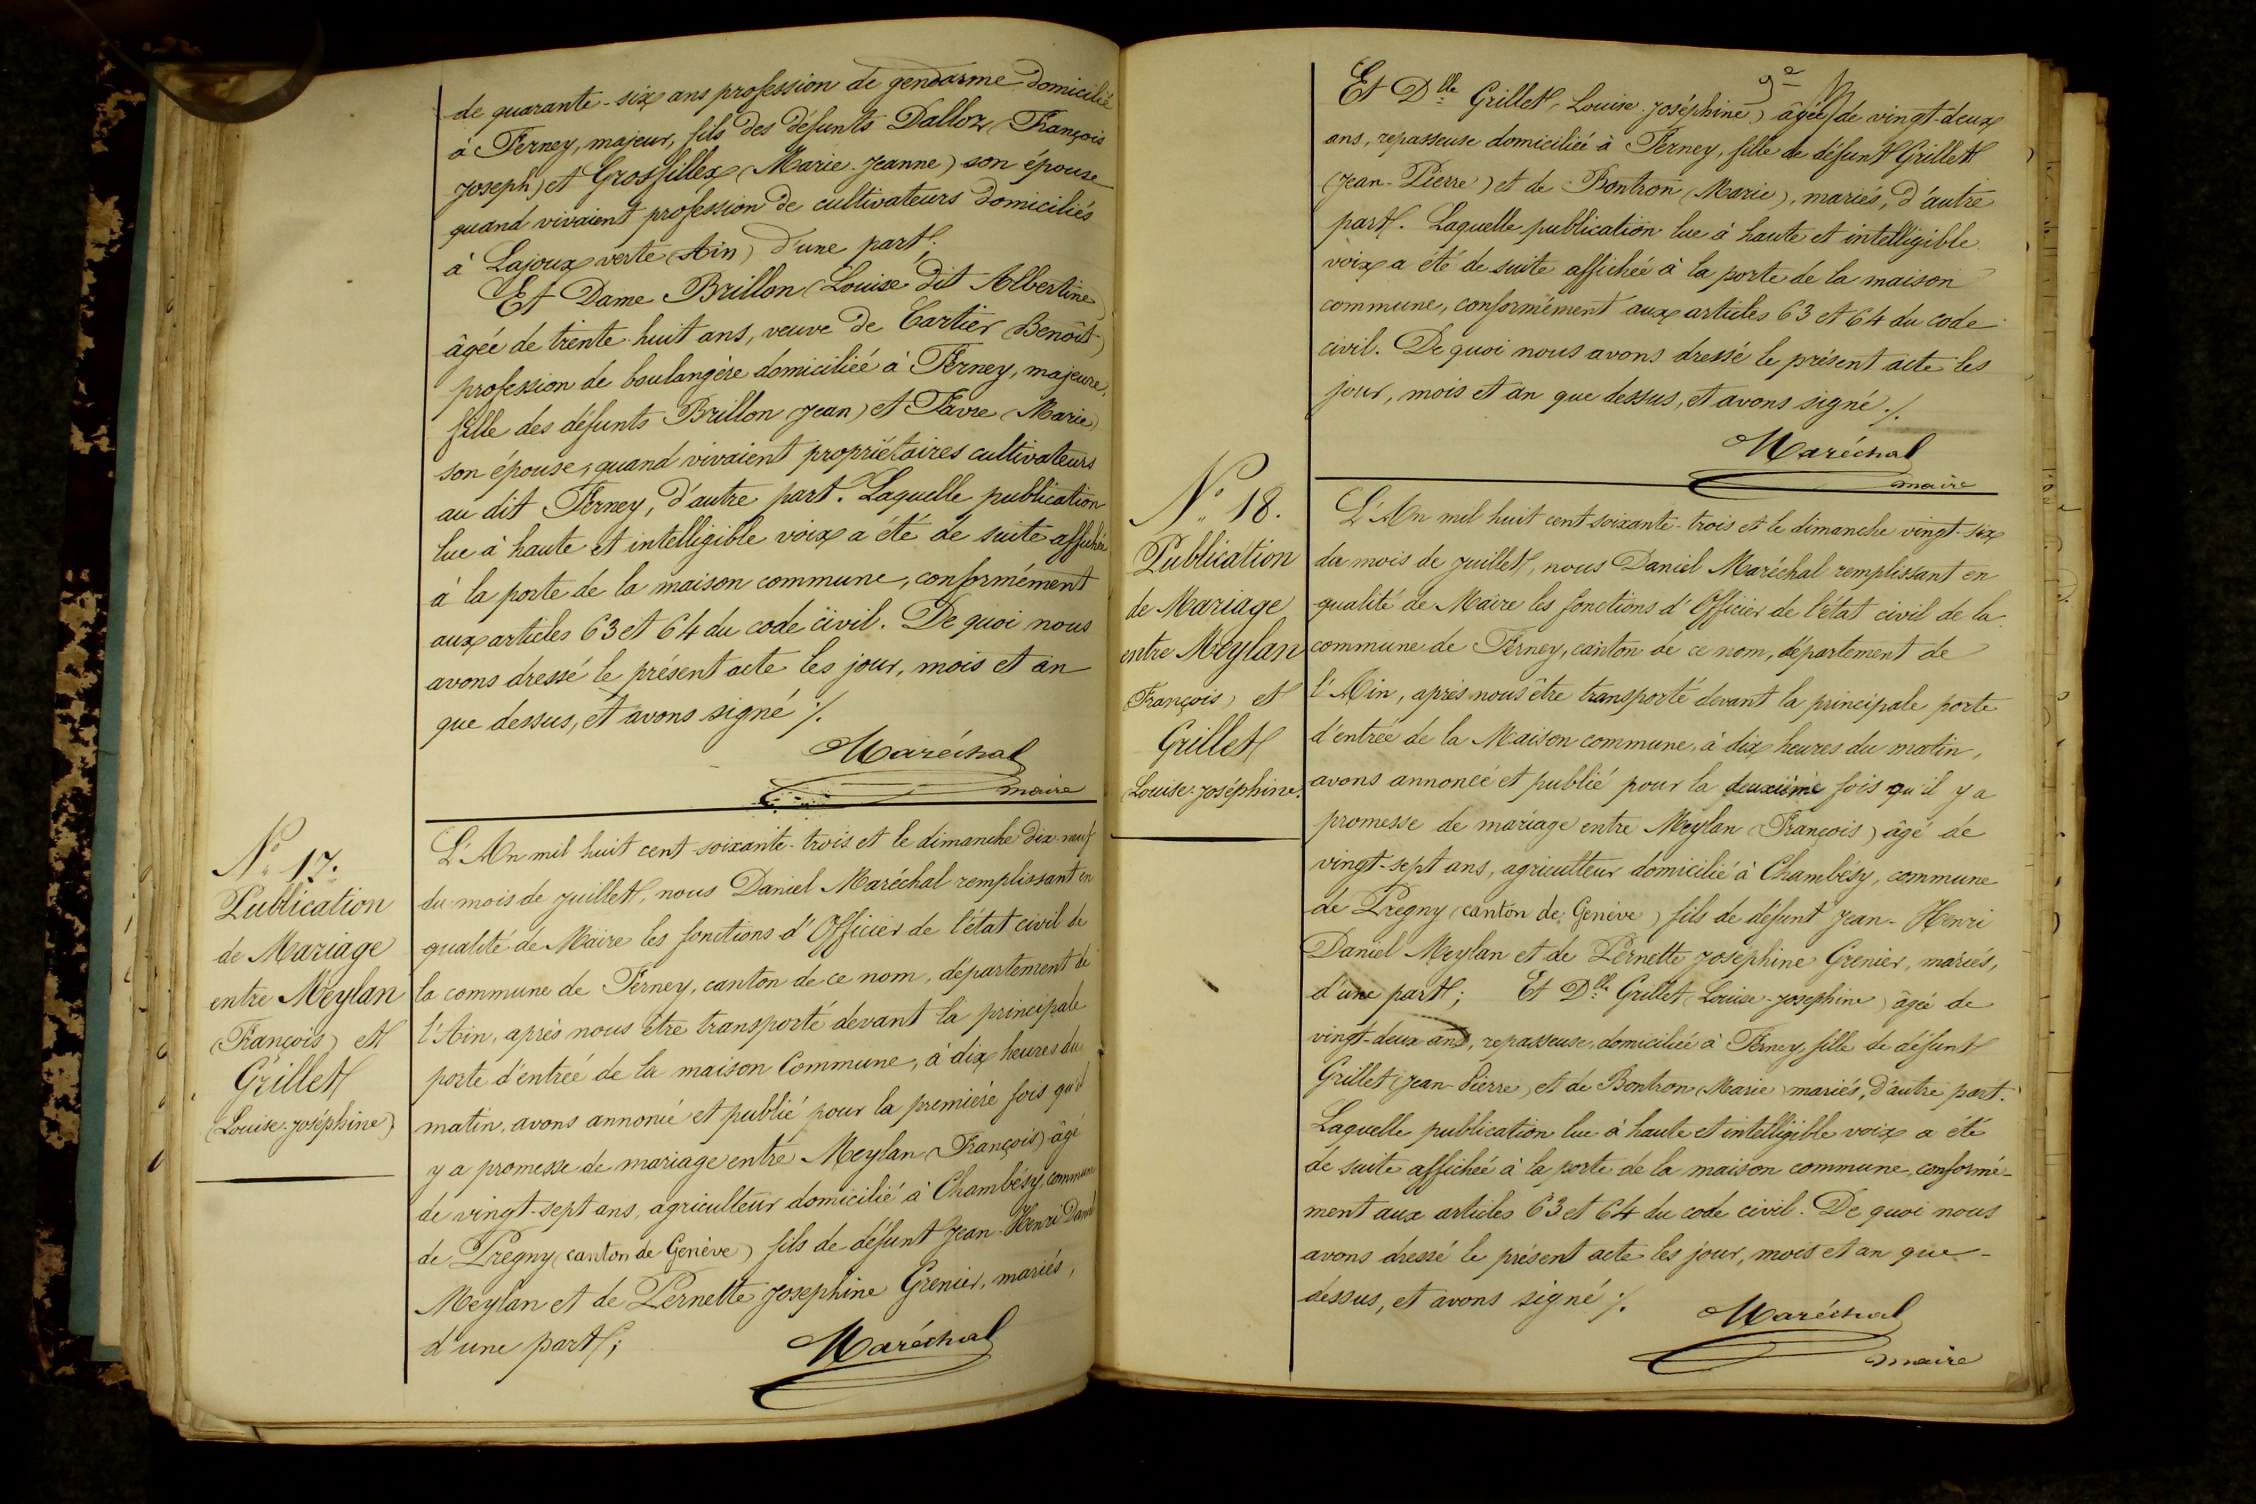 de quarante-six ans profession de gendarme domicilié
à Ferney, majeur, fils des défunts Dalloz (François
Joseph) et Grosfillex (Marie-Jeanne) son épouse
quand vivaient profession de cultivateurs domiciliés
à Lajoux verte (Ain) d'une part;
Et Dame Brillon (Louise dit Albertine)
âgée de trente-huit ans, veuve de Cartier (Benoît)
profession de boulangère domiciliée à Ferney, majeure,
fille des défunts Brillon (Jean) et Favre (Marie)
son épouse, quand vivaient propriétaires cultivateurs
au dit Ferney, d'autre part. Laquelle publication
lue à haute et intelligible voix a été de suite affichée
à la porte de la maison commune, conformément
aux articles 63 et 64 du code civil. De quoi nous
avons dressé le présent acte les jour, mois et an
que dessus, et avons signé ./.
Maréchal
maire
N° 17.
Publication
de Mariage
entre Meylan
(François) et
Grillet
(Louise-Joséphine)
L'An mil huit cent soixante-trois et le dimanche dix-neuf
du mois de Juillet, nous Daniel Maréchal remplissant en
qualité de Maire les fonctions d'Officier de l'état civil de
la commune de Ferney, canton de ce nom, département de
l'Ain, après nous être transporté devant la principale
porte d'entrée de la maison Commune, à dix heures du
matin, avons annoncé et publié pour la première fois qu'il
y a promesse de mariage entre Meylan (François) âgé
de vingt-sept ans, agriculteur domicilié à Chambésy, commune
de Pregny (canton de Genève) fils de défunt Jean-Henri Daniel
Meylan et de Pernette Josephine Grenier, mariés,
d'une part;
Maréchal
9e
Et Dlle Grillet (Louise-Joséphine) âgée de vingt-deux
ans, repasseuse domiciliée à Ferney, fille de défunt Grillet
(Jean-Pierre) et de Bontron (Marie), mariés, d'autre
part. Laquelle publication lue à haute et intelligible
voix a été de suite affichée à la porte de la maison
commune, conformément aux articles 63 et 64 du code
civil. De quoi nous avons dressé le présent acte les
jour, mois et an que dessus, et avons signé ./.
Maréchal
maire
N° 18.
Publication
de Mariage
entre Meylan
(François) et
Grillet
(Louise-Joséphine.
L'An mil huit cent soixante-trois et le dimanche vingt-six
du mois de Juillet, nous Daniel Maréchal remplissant en
qualité de Maire les fonctions d'Officier de l'état civil de la
commune de Ferney, canton de ce nom, département de
l'Ain, après nous être transporté devant la principale porte
d'entrée de la Maison commune, à dix heures du matin,
avons annoncé et publié pour la deuxième fois qu'il y a
promesse de mariage entre Meylan (François) âgé de
vingt-sept ans, agriculteur domicilié à Chambésy, commune
de Pregny (canton de Genève) fils de défunt Jean-Henri
Daniel Meylan et de Pernette Joséphine Grenier, mariés,
d'une part; Et Dlle Grillet (Louise-Josephine) âgée de
vingt-deux ans, repasseuse, domiciliée à Ferney, fille de défunt
Grillet (Jean-Pierre) et de Bontron (Marie) mariés, d'autre part.
Laquelle publication lue à haute et intelligible voix a été
de suite affichée à la porte de la maison commune, conformé-
ment aux articles 63 et 64 du code civil. De quoi nous
avons dressé le présent acte les jour, mois et an que-
dessus, et avons signé ./.
Maréchal
maire